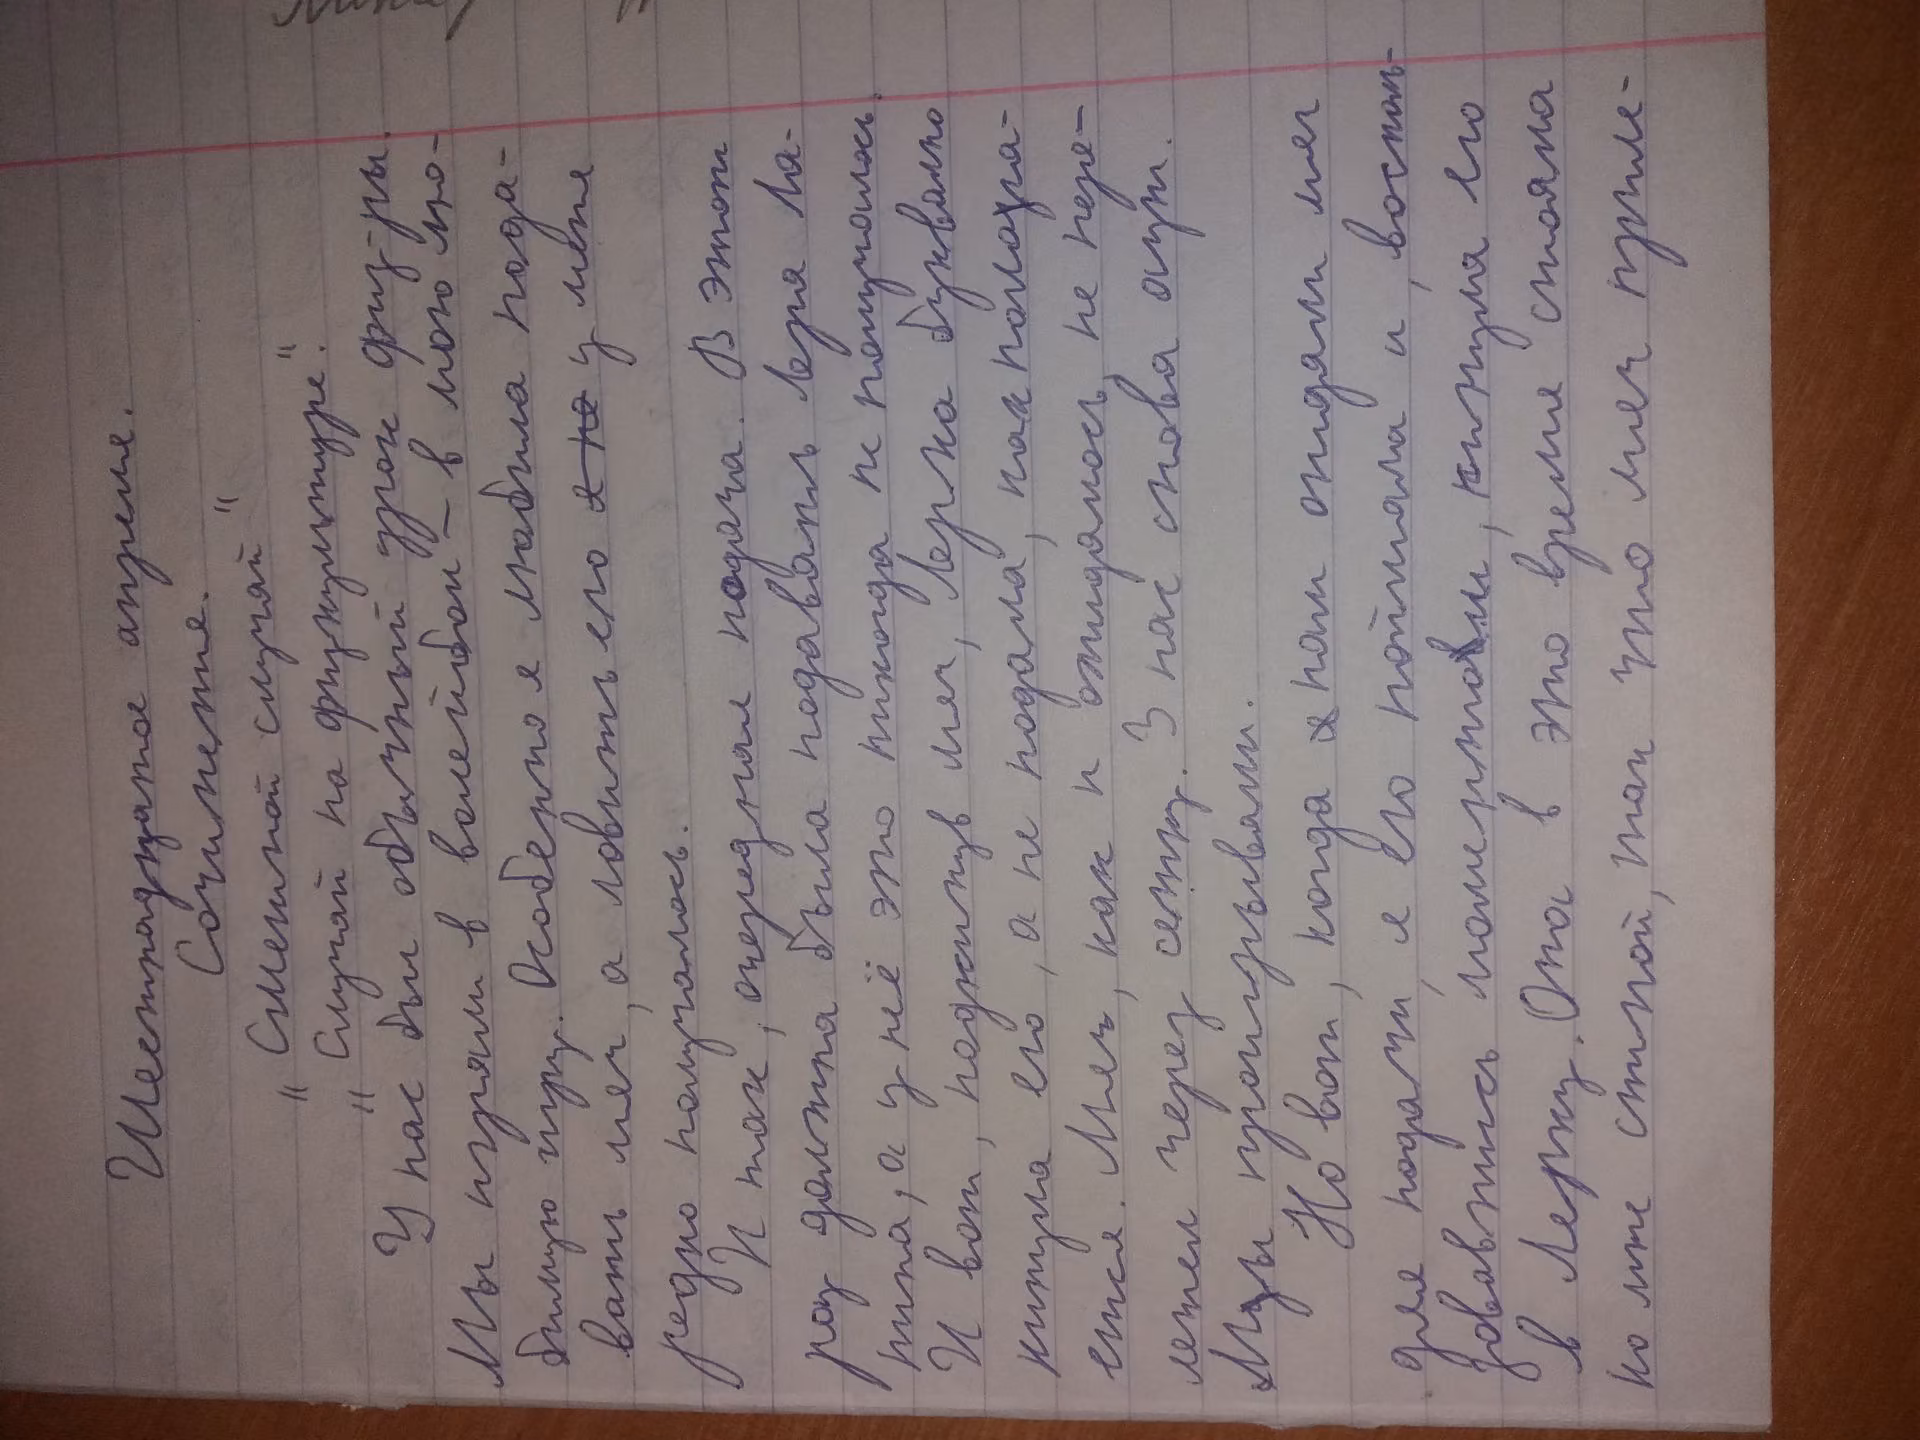 Шестнадцатое апреля.
Сочинение.
"Смешной случай"
"Случай на физкультуре".
У нас был обычный урок физ-ры.
Мы играли в волейбол – в мою лю-
бимую игру. Особено я любила пода-
вать мяч, а ловить его у меня
редко получалось.
И так, очередная подача. В этот
раз должна была подавать Лера Ла-
пина, а у неё это никогда не получалось.
И вот, подкинув мяч, Лерка буквально
кинула его, а не подала, как полага-
ется. Мяч, как и ожидалось, не пере-
летел через сетку. З нас снова аут.
Мы проигрывали.
Но вот, когда нам отдали мяч
для подачи, я его поймала и, восполь-
зовавшись моментом, кинула его
в Лерку. Она в это время стояла
ко мне спиной, так что мяч приле-